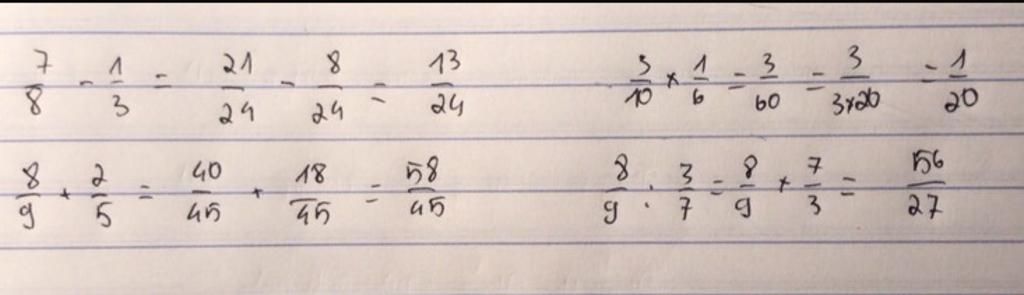 7/8 - 1/3 = 21/24 - 8/24 = 13/24
3/10 × 1/6 = 3/60 = 3/3×20 = 1/20
8/9 + 2/5 = 40/45 + 18/45 = 58/45
8/9 : 3/7 = 8/9 × 7/3 = 56/27